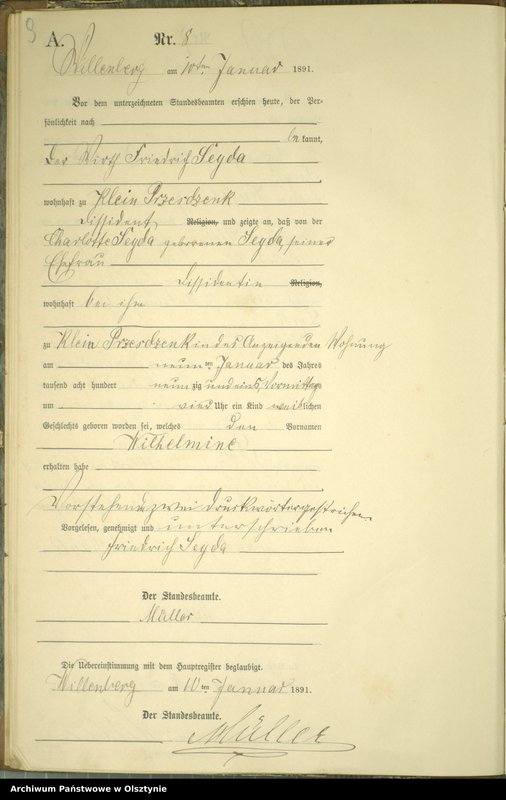 9
A.
Nr. 8
Willenberg am 10ten Januar 1891.
Vor dem unterzeichneten Standesbeamten erschien heute, der Per-
sönlichkeit nach
bekannt,
der Wirth Friedrich Seyda
wohnhaft zu Klein Przesdzenk
Dissident Religion, und zeigte an, daß von der
Charlotte Seyda geborenen Seyda, seiner
Ehefrau
Dissidentin Religion,
wohnhaft bei ihm
zu Klein Przesdzenk in des Anzeigenden Wohnung
am neunten Januar des Jahres
tausend acht hundert neunzig und eins, Vormittags
um vier Uhr ein Kind weiblichen
Geschlechts geboren worden sei, welches den Vornamen
Wilhelmine
erhalten habe
Vorstehend zwei Druckwörter gestrichen
Vorgelesen, genehmigt und unterschrieben
Friedrich Seyda
Der Standesbeamte.
Müller
Die Uebereinstimmung mit dem Hauptregister beglaubigt.
Willenberg am 10ten Januar 1891.
Der Standesbeamte.
Müller
Archiwum Państwowe w Olsztynie